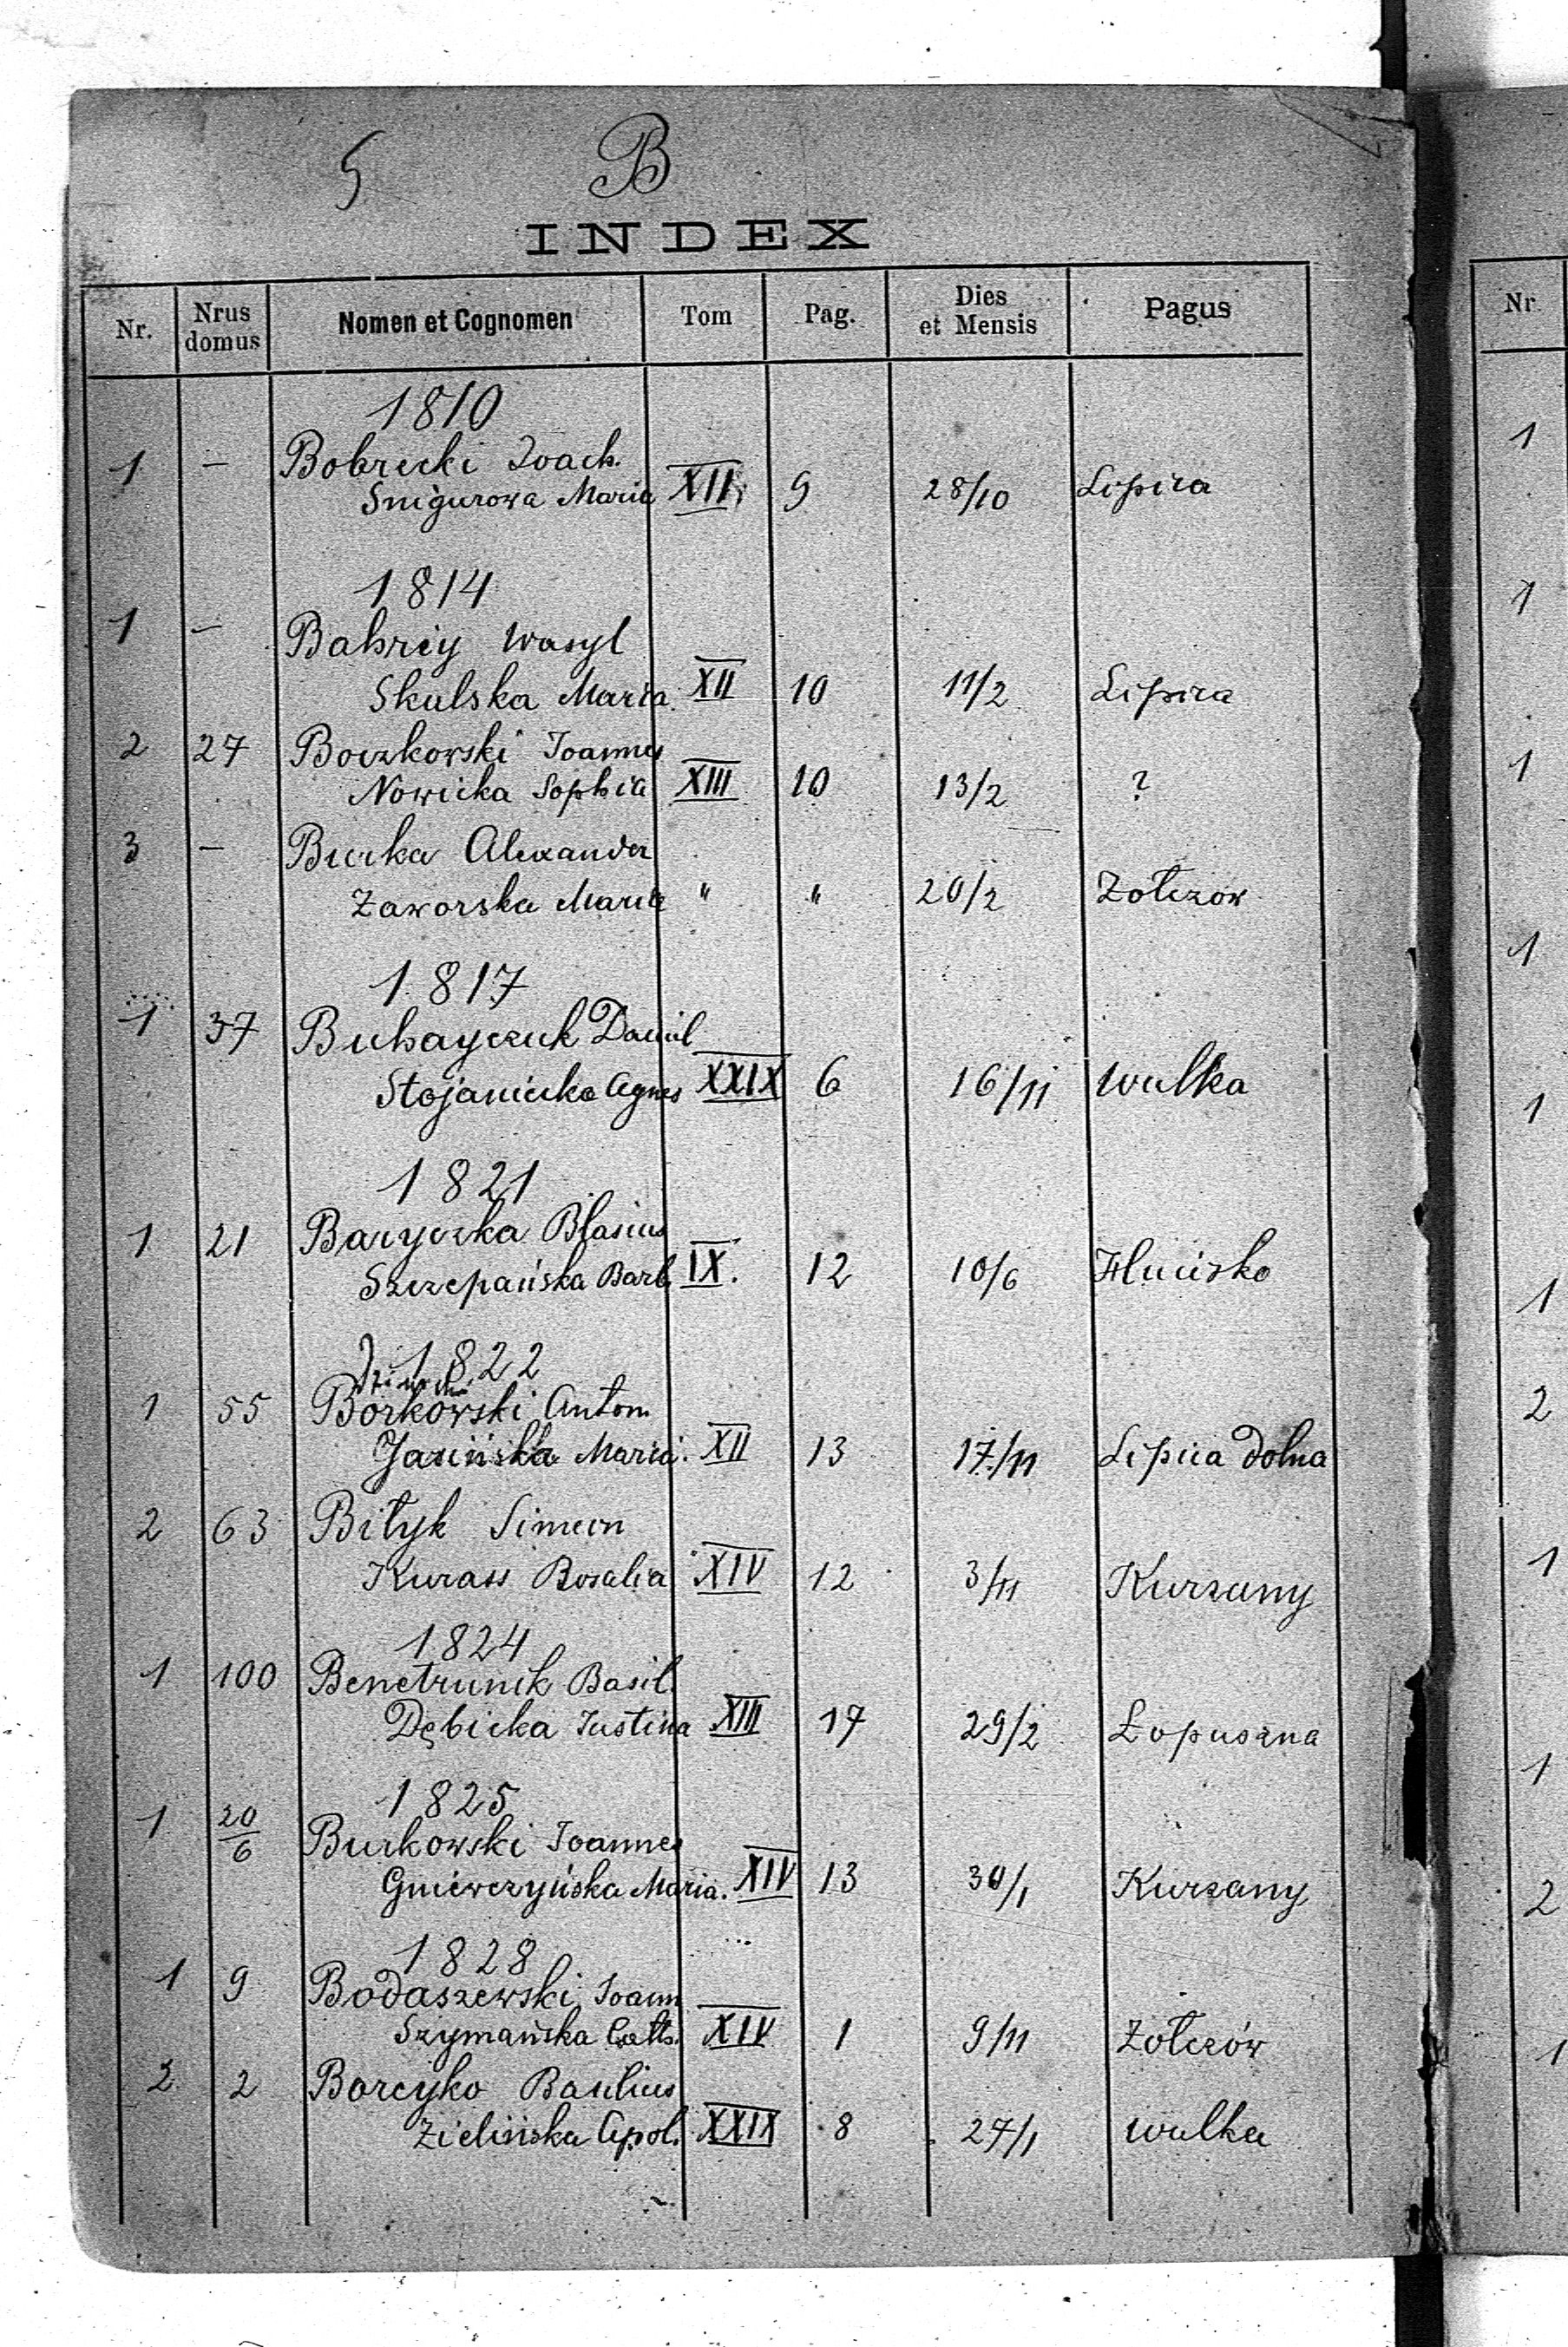 5 B
INDEX
Nr. Nrus domus Nomen et Cognomen Tom Pag. Dies et Mensis Pagus
1810
1 — Bobrecki Joach.
Snigurowa Maria XII 9 28/10 Lipica
1814
1 — Bahrcy Wasyl
Skulska Maria XII 10 11/2 Lipica
2 27 Boczkowski Joannes
Nowicka Sophia XIII 10 13/2 ?
3 — Burka Alexander
Zaworska Maria " " 20/2 Żołczow
1817
1 37 Buhayczuk Daniil
Stojanicka Agnes XXIX 6 16/11 Wulka
1821
1 21 Baryczka Blasius
Szczepańska Barb. IX. 12 10/6 Hucisko
1822
1 55 Borkowski Anton.
Jasińska Maria. XII 13 17/11 Lipica dolna
2 63 Biłyk Simeon
Kurass Rosalia XIV 12 3/11 Kurzany
1824
1 100 Benetrunik Basil.
Dębicka Justina XIII 17 29/2 Łopuszna
1825
1 20/6 Burkowski Joannes
Gniewczyńska Maria. XIV 13 30/1 Kurzany
1828
1 9 Bodaszewski Joann
Szymańska Cath. XIV 1 9/11 Żołczów
2 2 Borcyko Basilius
Zielińska Apol. XXIX 8 27/1 Wulka
Nr
1
1
1
1
1
1
2
1
1
2
1